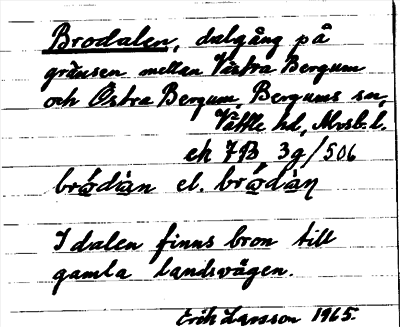 Brodalen, dalgång på
gränsen mellan Västra Bergum
och Östra Bergum, Bergums sn,
Vättle hd, Älvsb. l.
ek 7B, 3g/506
brớdàn el. brớdàn
I dalen finns bron till
gamla landsvägen.
Erik Larsson 1965.